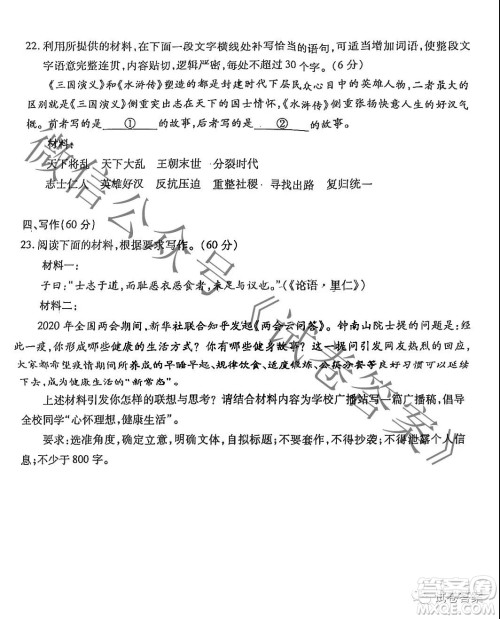 22. 利用所提供的材料,在下面一段文字横线处补写恰当的语句,可适当增加词语,使整段
文字语意完整连贯,内容贴切,逻辑严密,每处不超过30个字。(6分)
《三国演义》和《水浒传》塑造的都是封建时代下层民众心目中的英雄人物,二者最大的
区别就是《三国演义》侧重突出志在天下的国士情怀,《水浒传》侧重张扬快意人生的好汉气
概。前者写的是 ① 的故事,后者写的是 ② 的故事。
材料:
天下将乱 天下大乱 王朝末世 分裂时代
志士仁人 英雄好汉 反抗压迫 重整社稷 寻找出路 复归统一
四、写作(60分)
23. 阅读下面的材料,根据要求写作。(60分)
材料一:
子曰:“士志于道,而耻恶衣恶食者,未足与议也。”(《论语·里仁》)
材料二:
2020年全国两会期间,新华社联合知乎发起《两会云问答》。钟南山院士提的问题是:经
此一疫,你形成哪些健康的生活方式?你有哪些健身故事?这一提问引发网友热烈的回应,
大家都希望疫情期间所养成的早睡早起、规律饮食、适度锻炼、公筷分餐等良好习惯可以延续
下去,成为健康生活的“新常态”。
上述材料引发你怎样的联想与思考?请结合材料内容为学校广播站写一篇广播稿,倡导
全校同学“心怀理想,健康生活”。
要求:选准角度,确定立意,明确文体,自拟标题;不要套作,不得抄袭;不得泄露个人信
息;不少于800字。
微信公众号《试卷答案》
试卷答案